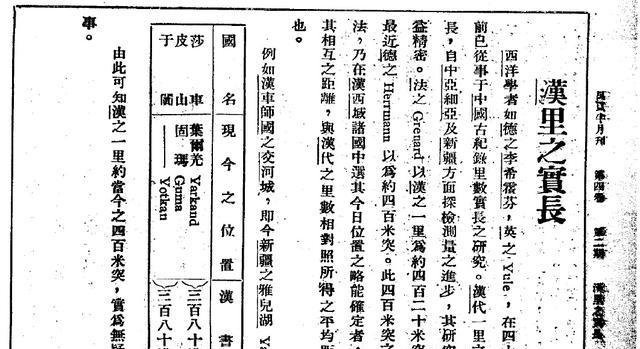 禹貢半月刊 第四卷 第二期
漢里之實長
西洋學者如德之李希霍芬,英之 Yule,在四十
前已從事于中國古紀錄里數實長之研究。漢代一里之
長,自中亞細亞及新疆方面探檢測量之進步,其研究
益精密。法之 Grenard 以漢之一里爲約四百二十米突
最近德之 Herrmann 以爲約四百米突。此四百米突之
法,乃在漢西域諸國中選其今日位置之略能確定者,
其相互之距離,與漢代之里數相對照所得之平均
也。
例如漢車師國之交河城,即今新疆之雅兒湖
國名 現今之位置 漢書
莎車 葉爾羌 Yarkand 三百八十
皮山 固瑪 Guma
于闐 Yotkan 三百八十
由此可知漢之一里約當今之四百米突,實爲無疑
事。